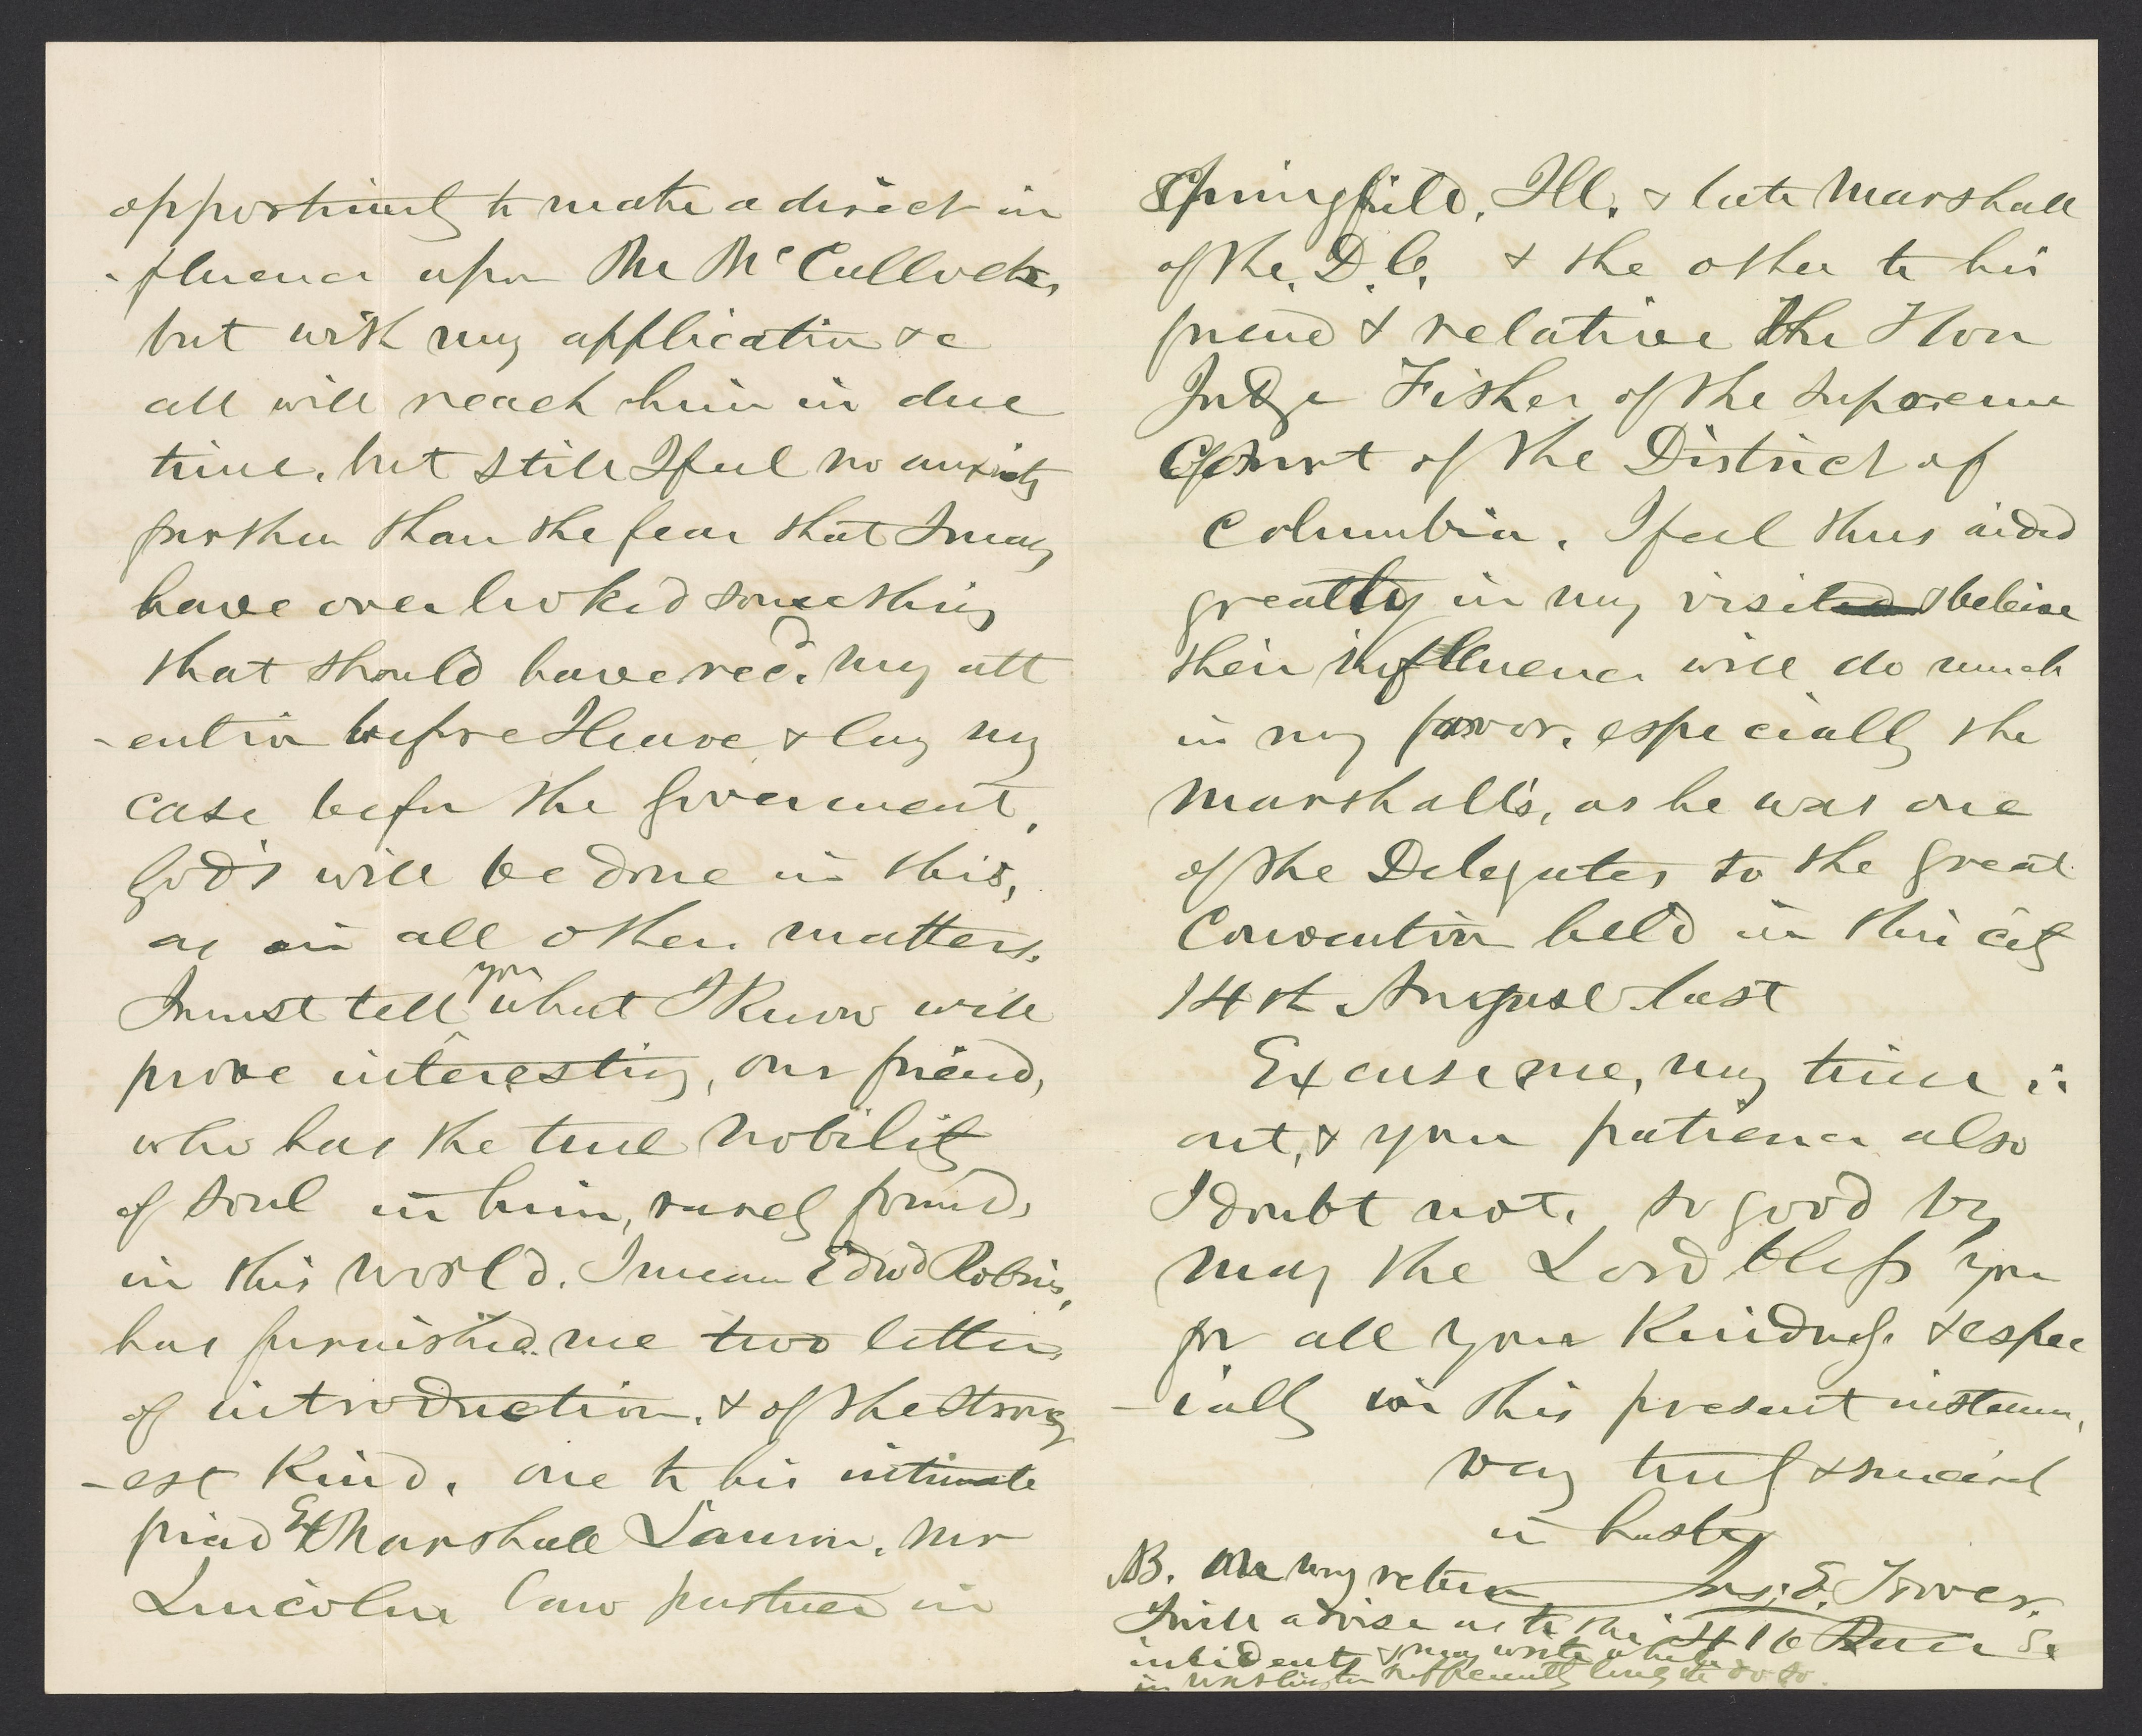 opportunity to make a direct in
-fluence upon Mr McCulloch,
but with my application &c
all will reach him in due
time, but still I feel no anxiety
further than the fear that I may
have overlooked something
that should have recd. my att
-ention before I leave & lay my
case before the Government,
God's will be done in this,
as in all other matters.
I must tell you what I Know will
prove interesting, our friend,
who has the true nobility
of soul in him, rarely found,
in this world. I mean Edwd Robins,
has furnished me two letters
of introduction, & of the strong
-est Kind. one to his intimate
friend Ex Marshall Lamon, Mr
Lincoln Law partner in
Springfield, Ill. & late Marshall
of the D.C. & the other to his
friend & relative The Hon
Judge Fisher of the Supreme
Court of the District of
Columbia. I feel thus aided
greatly in my visit & believe
their influence will do much
in my favor, especially the
Marshall's, as he was one
of the Delegates to the great
Convention held in this city
14th August last
Excuse me, my time is
out, & your patience also
I doubt not. so good by
may the Lord bless you
for all your Kindness & espec
-ially in this present instance,
very truly & sincerely
in haste
NB. On my return Jas. E. Tower.
I will advise as to the 416 Race St
incidents & may write while
in Washington sufficiently long to do so.